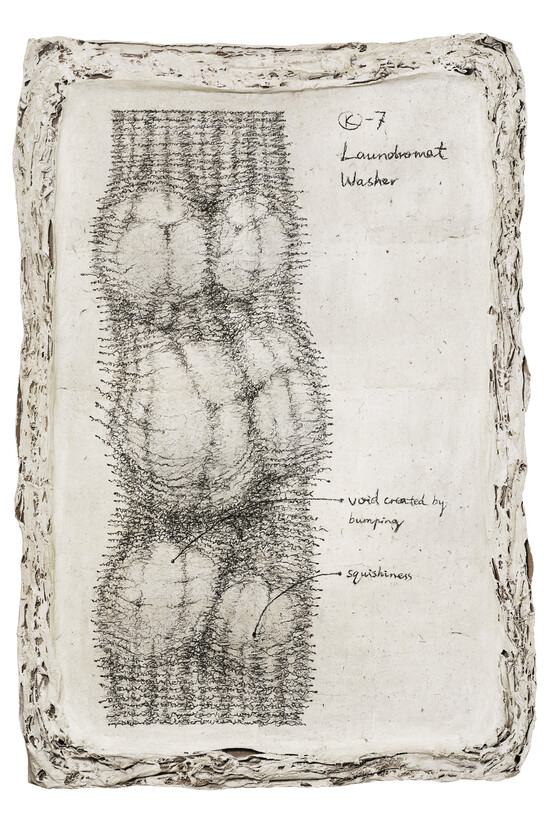 Ⓚ-7
Laundromat
Washer
void created by
bumping
squishiness